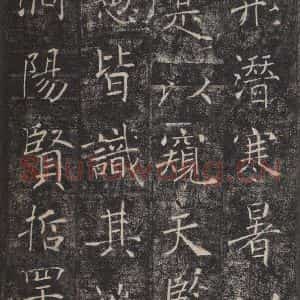 形潛寒暑以
是以窺天鑑
愚皆識其端
洞陽賢哲罕